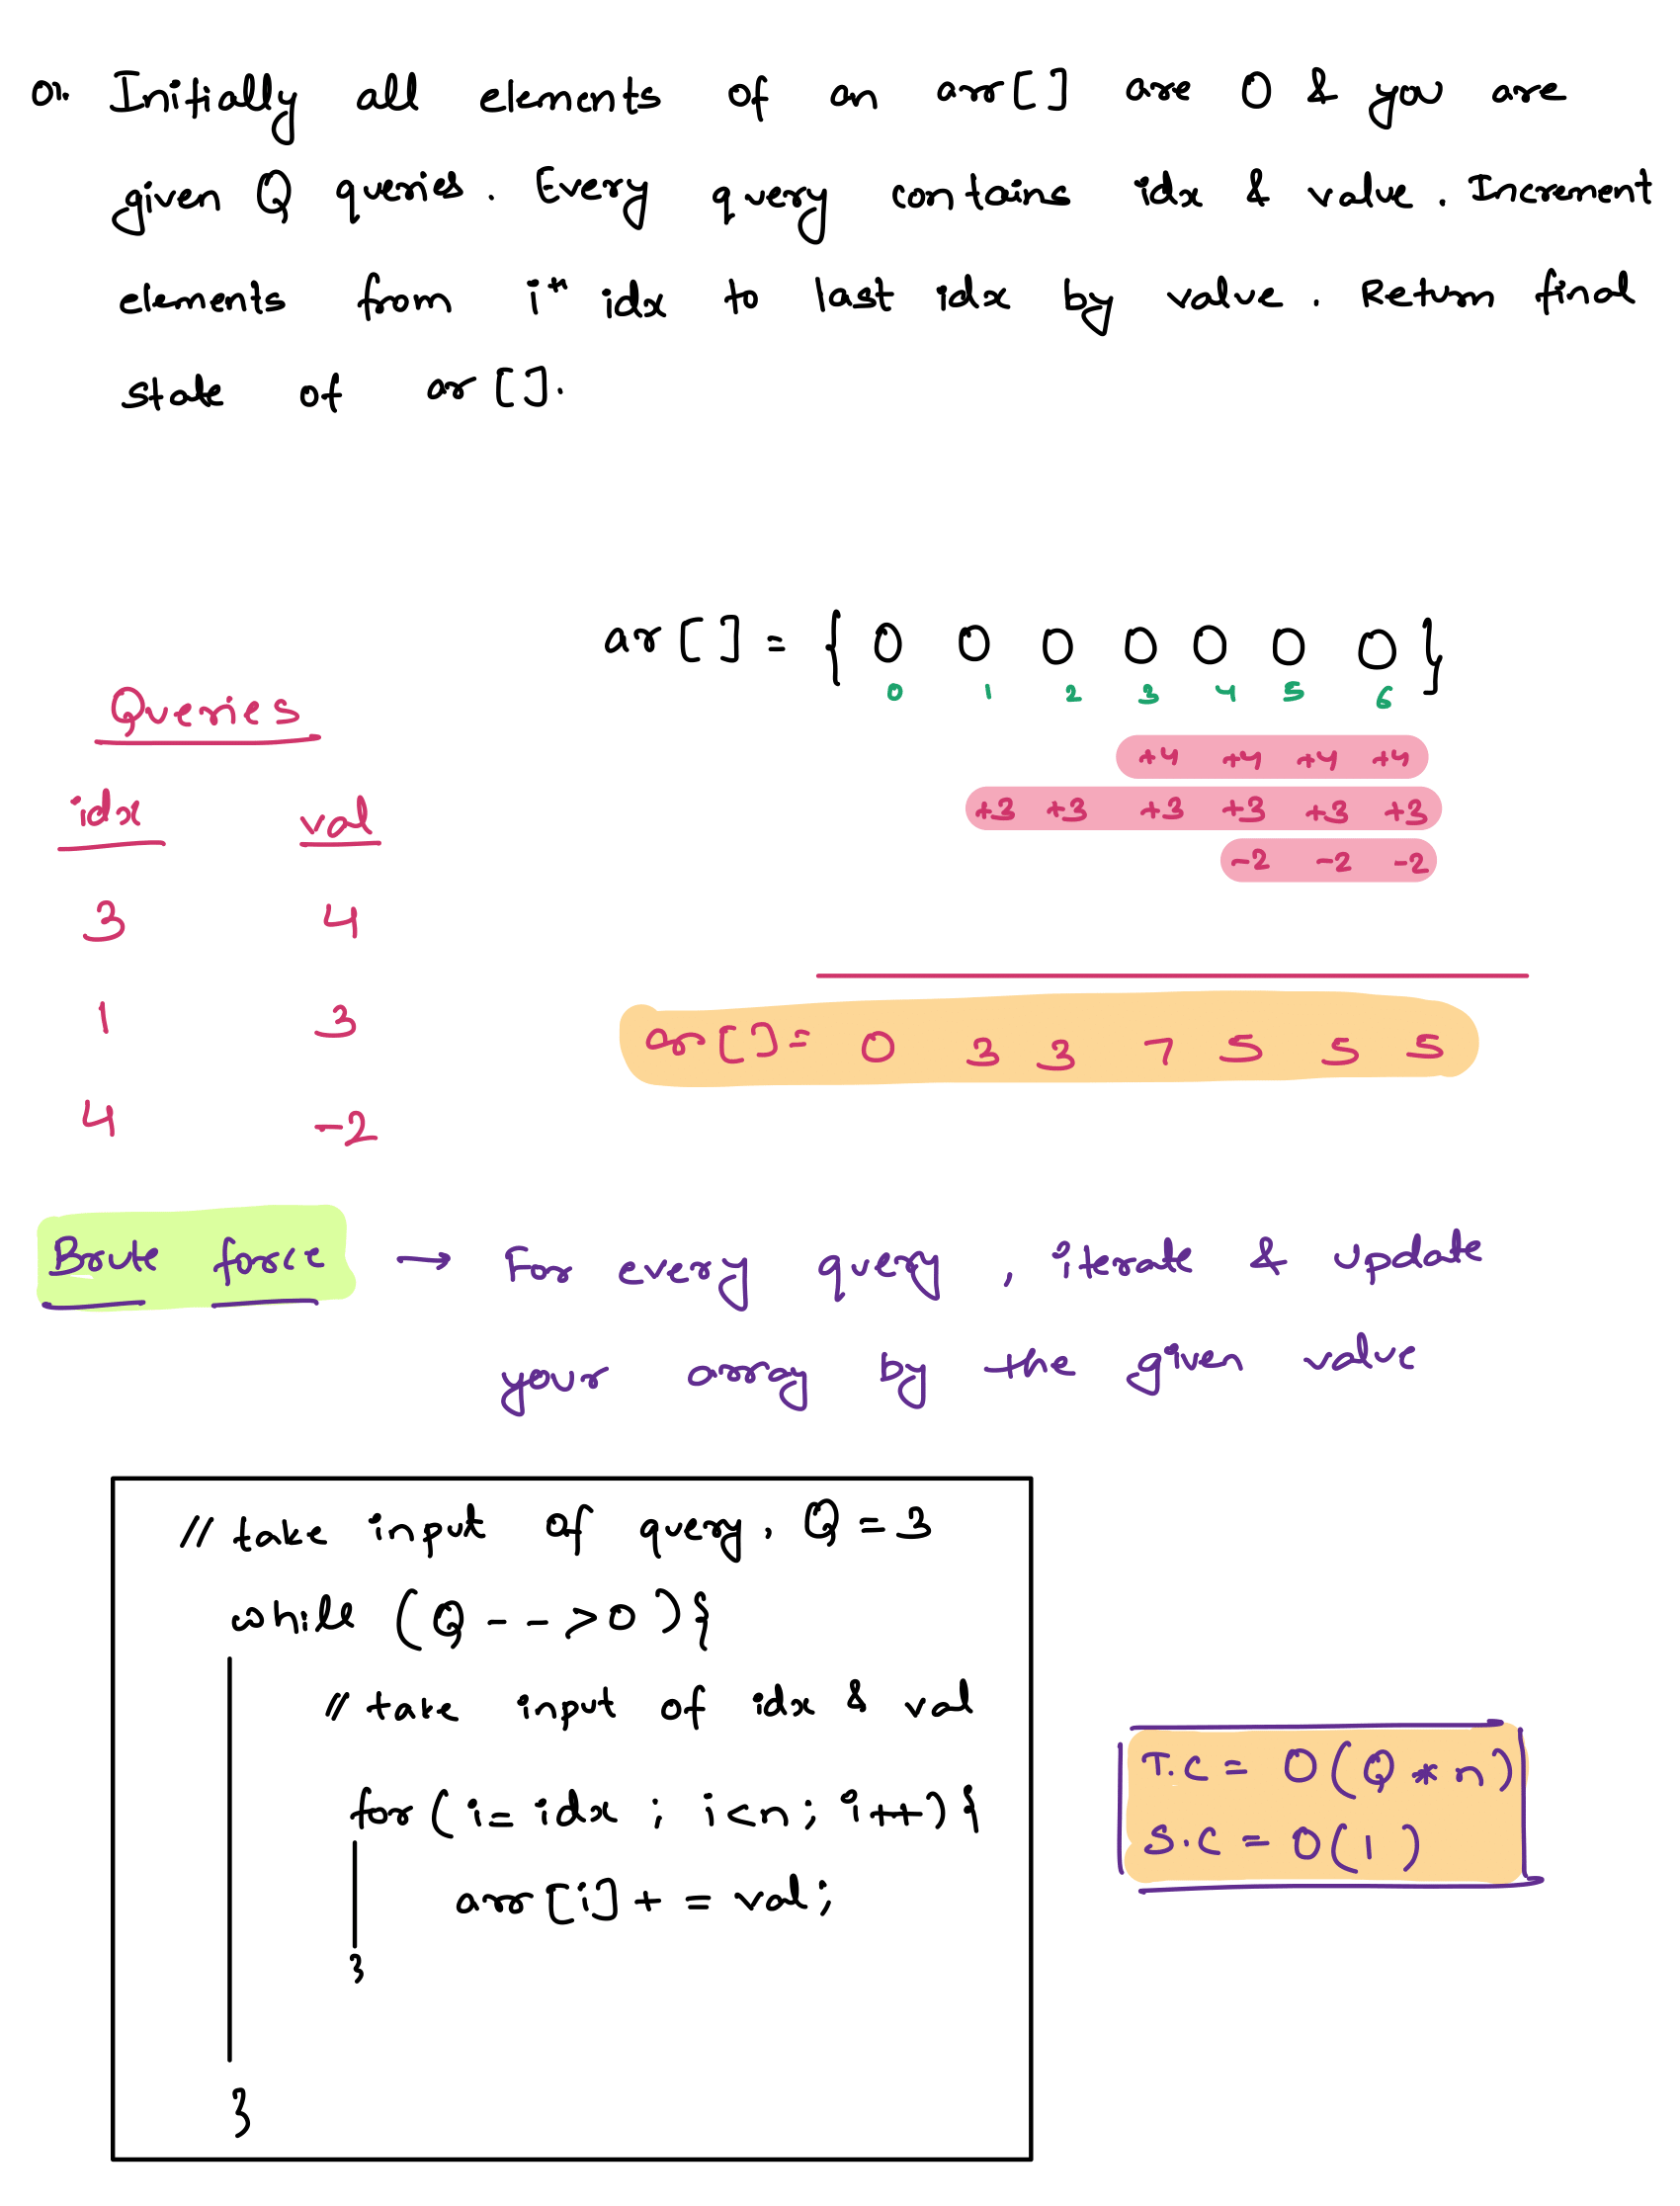 Q1. Initially all elements of an arr[] are 0 & you are
given Q queries. Every query contains idx & value. Increment
elements from ith idx to last idx by value. Return final
state of ar[].
ar[] = { 0 0 0 0 0 0 0 }
0 1 2 3 4 5 6
Queries
+4 +4 +4 +4
idx val
+3 +3 +3 +3 +3 +3
-2 -2 -2
3 4
1 3
ar[] = 0 3 3 7 5 5 5
4 -2
Brute force → For every query, iterate & update
your array by the given value
// take input of query. Q = 3
while (Q-->0){
// take input of idx & val
for(i=idx; i<n; i++){
arr[i] += val;
}
}
T.C = O(Q*n)
S.C = O(1)